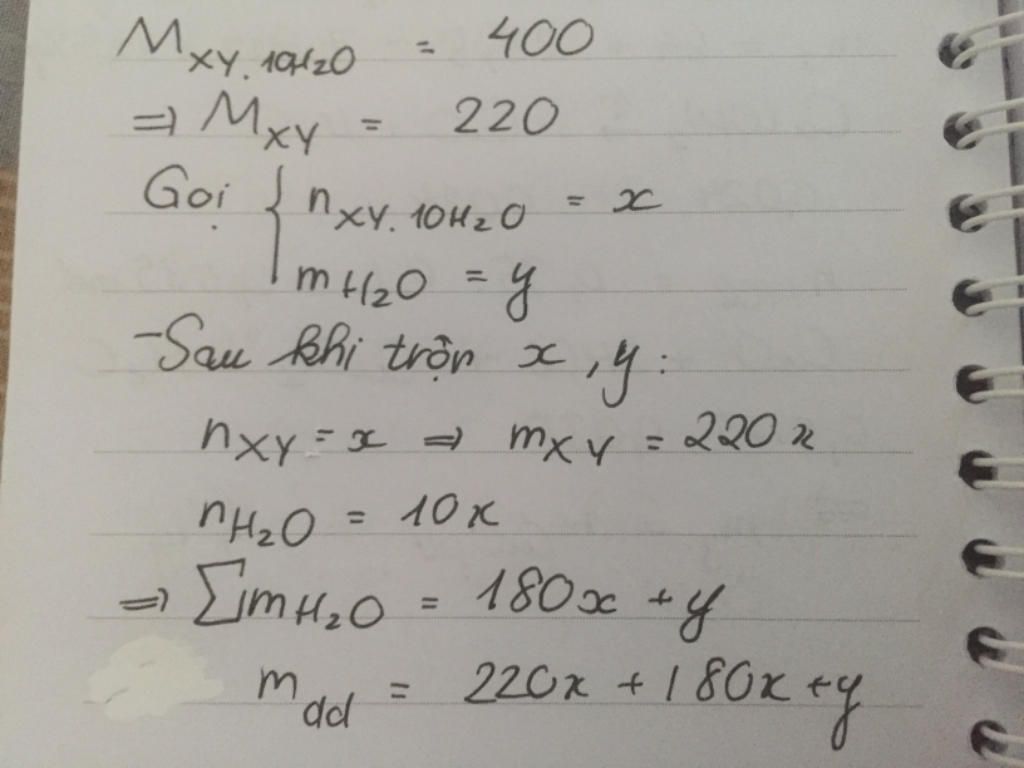 M XY.10H₂O = 400
⇒ M XY = 220
Gọi { n XY.10H₂O = x
m H₂O = y
- Sau khi trộn x, y:
n XY = x ⇒ m XY = 220x
n H₂O = 10x
⇒ ∑m H₂O = 180x + y
m dd = 220x + 180x + y